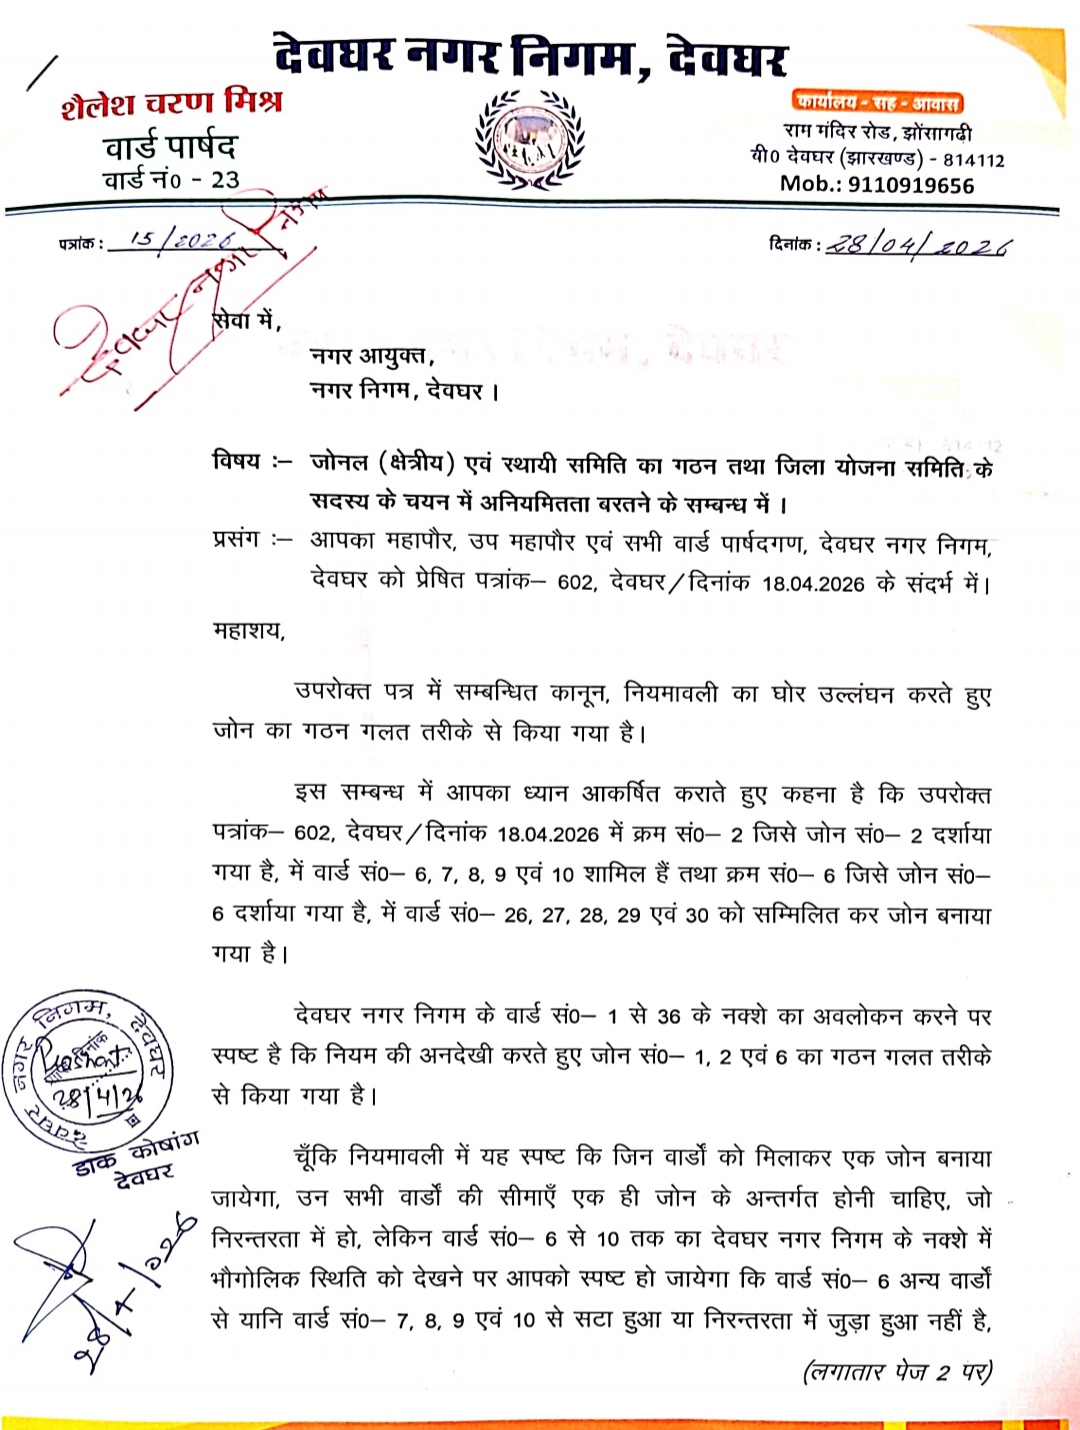 देवघर नगर निगम, देवघर
शैलेश चरण मिश्र
वार्ड पार्षद
वार्ड नं0 - 23
कार्यालय - सह - आवास
राम मंदिर रोड, झोंसागढ़ी
बी0 देवघर (झारखण्ड) - 814112
Mob.: 9110919656
पत्रांक : 15/2026
दिनांक : 28/04/2026
देवघर नगर निगम
सेवा में,
नगर आयुक्त,
नगर निगम, देवघर ।
विषय :– जोनल (क्षेत्रीय) एवं स्थायी समिति का गठन तथा जिला योजना समिति के
सदस्य के चयन में अनियमितता बरतने के सम्बन्ध में ।
प्रसंग :– आपका महापौर, उप महापौर एवं सभी वार्ड पार्षदगण, देवघर नगर निगम,
देवघर को प्रेषित पत्रांक– 602, देवघर/दिनांक 18.04.2026 के संदर्भ में।
महाशय,
उपरोक्त पत्र में सम्बन्धित कानून, नियमावली का घोर उल्लंघन करते हुए
जोन का गठन गलत तरीके से किया गया है।
इस सम्बन्ध में आपका ध्यान आकर्षित कराते हुए कहना है कि उपरोक्त
पत्रांक– 602, देवघर/दिनांक 18.04.2026 में क्रम सं0– 2 जिसे जोन सं0– 2 दर्शाया
गया है, में वार्ड सं0– 6, 7, 8, 9 एवं 10 शामिल हैं तथा क्रम सं0– 6 जिसे जोन सं0–
6 दर्शाया गया है, में वार्ड सं0– 26, 27, 28, 29 एवं 30 को सम्मिलित कर जोन बनाया
गया है।
देवघर नगर निगम के वार्ड सं0– 1 से 36 के नक्शे का अवलोकन करने पर
स्पष्ट है कि नियम की अनदेखी करते हुए जोन सं0– 1, 2 एवं 6 का गठन गलत तरीके
से किया गया है।
देवघर नगर निगम, देवघर
28/4/26
डाक कोषांग
देवघर
चूँकि नियमावली में यह स्पष्ट कि जिन वार्डों को मिलाकर एक जोन बनाया
जायेगा, उन सभी वार्डों की सीमाएँ एक ही जोन के अन्तर्गत होनी चाहिए, जो
निरन्तरता में हो, लेकिन वार्ड सं0– 6 से 10 तक का देवघर नगर निगम के नक्शे में
भौगोलिक स्थिति को देखने पर आपको स्पष्ट हो जायेगा कि वार्ड सं0– 6 अन्य वार्डों
से यानि वार्ड सं0– 7, 8, 9 एवं 10 से सटा हुआ या निरन्तरता में जुड़ा हुआ नहीं है,
(लगातार पेज 2 पर)